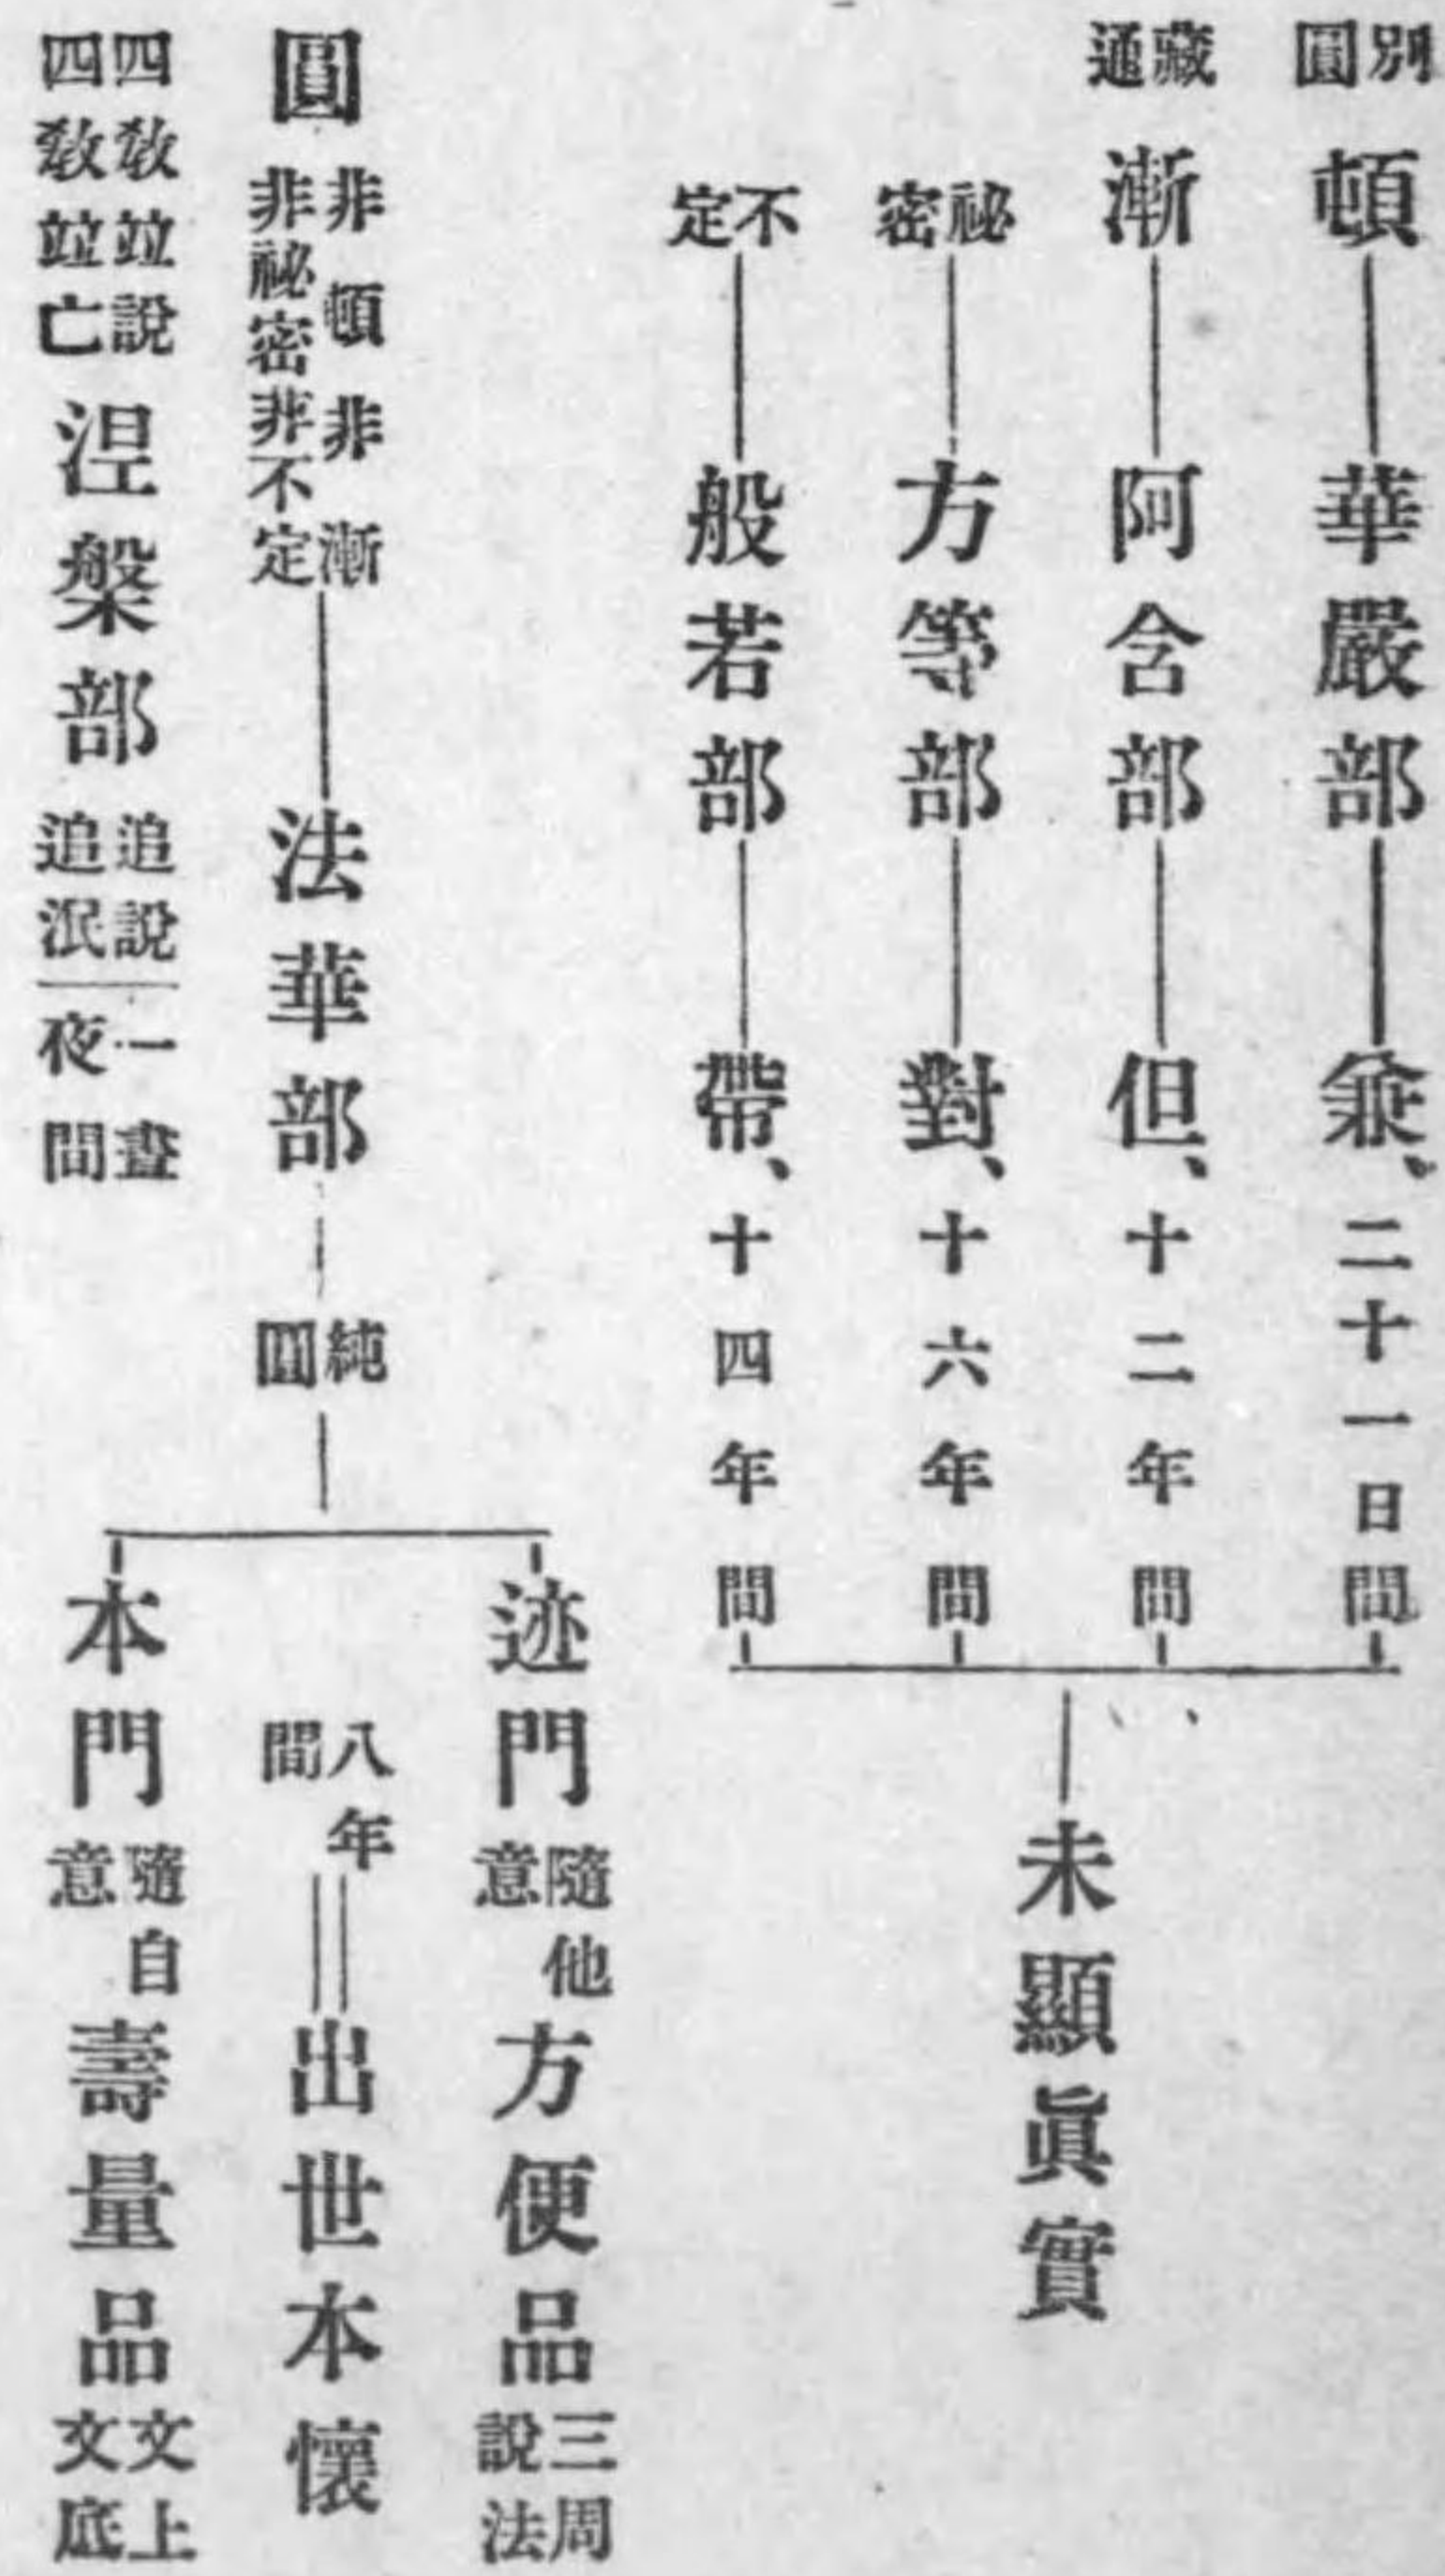 別圓 頓 華嚴部 兼、二十一日間
藏通 漸 阿含部 但、十二年間
祕密 方等部 對、十六年間
不定 般若部 帶、十四年間
未顯眞實
圓 非頓非漸 非祕密非不定 法華部 純圓
迹門 隨他意 方便品 三周說法
八年間 出世本懷
本門 隨自意 壽量品 文上 文底
四敎竝說 四敎竝亡 涅槃部 追說 追泯 一晝夜間